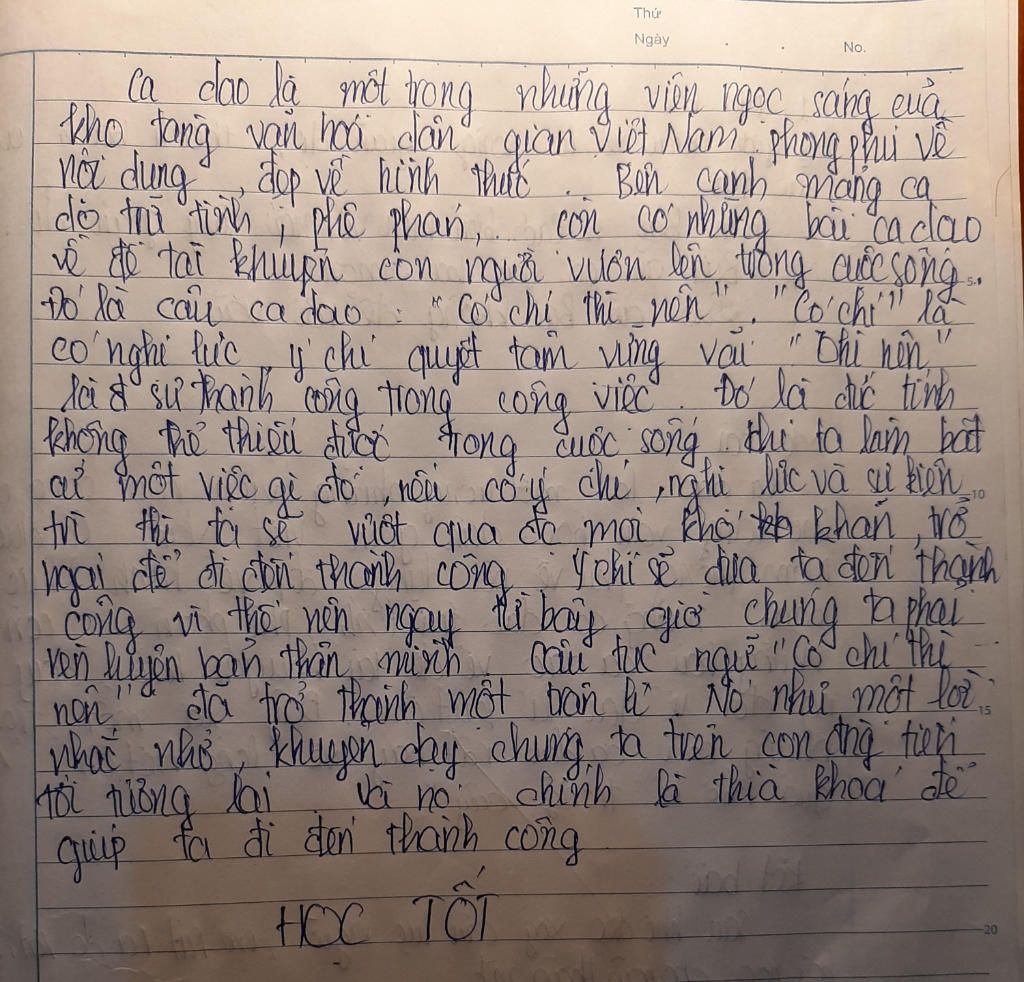 Thứ
Ngày . . No.
Ca dao là một trong những viên ngọc sáng của
kho tàng văn hoá dân gian Việt Nam phong phú về
nội dung, đẹp về hình thức. Bên cạnh mảng ca
dò trữ tình, phê phán,... còn có những bài ca dao
về đề tài khuyên con người vươn lên trong cuộc sống.
Đó là câu ca dao: "Có chí thì nên". "Có chí" là
có nghị lực, ý chí quyết tâm vững vài "thì nên"
là sự thành công trong công việc. Đó là đức tính
không thể thiếu được trong cuộc sống. khi ta làm bất
cứ một việc gì đó, nếu có ý chí, nghị lực và sự kiên
trì thì ta sẽ vượt qua đc mọi khó khăn, trở
ngại để đi đến thành công. Ý chí sẽ đưa ta đến thành
công vì thế nên ngay từ bây giờ chúng ta phải
rèn luyện bản thân mình. Câu tục ngữ "Có chí thì
nên" đã trở thành một trân lí. Nó như một lời
nhắc nhở, khuyên dạy chúng ta trên con đng tiến
tới tương lai. Và nó chính là thìa khoá để
giúp ta đi đến thành công.
HỌC TỐT
5
10
15
20